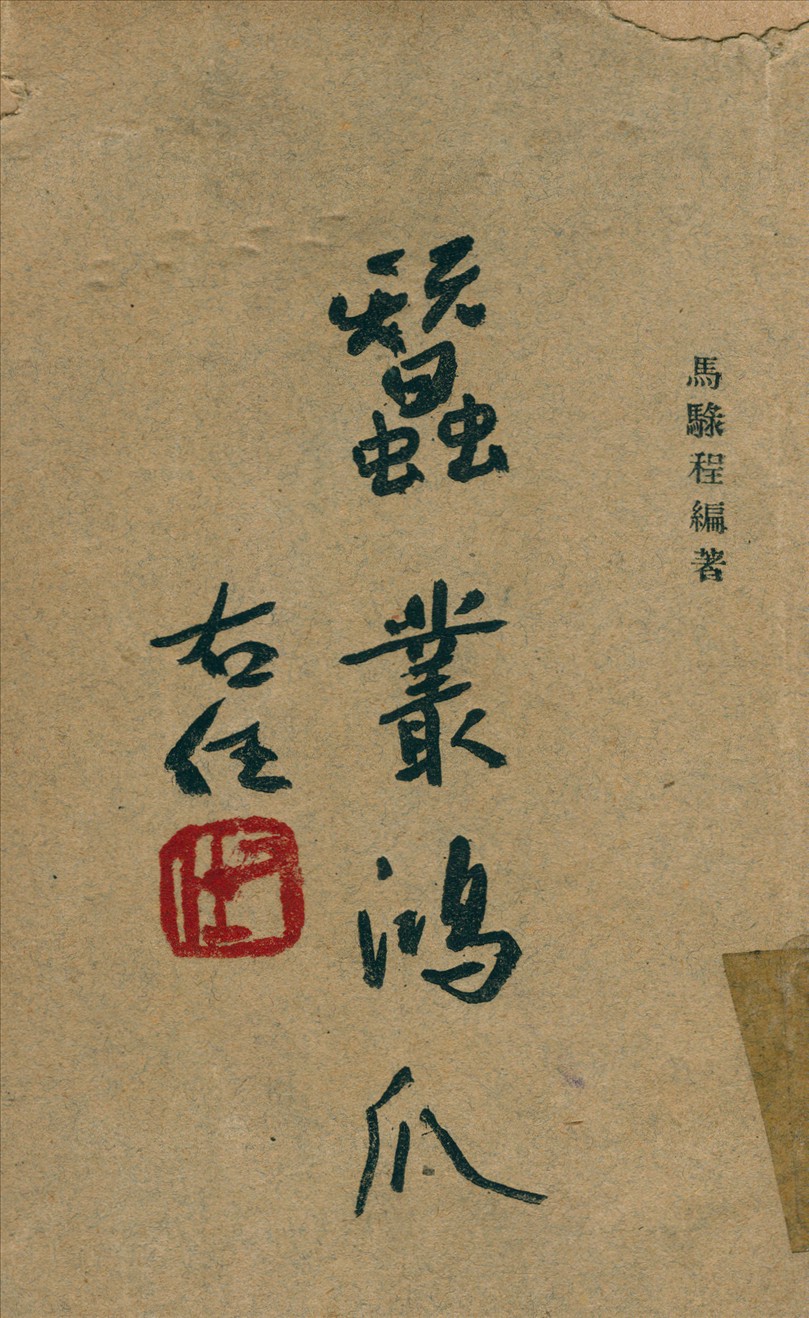 馬騄程編著
蠶叢鴻爪
右任